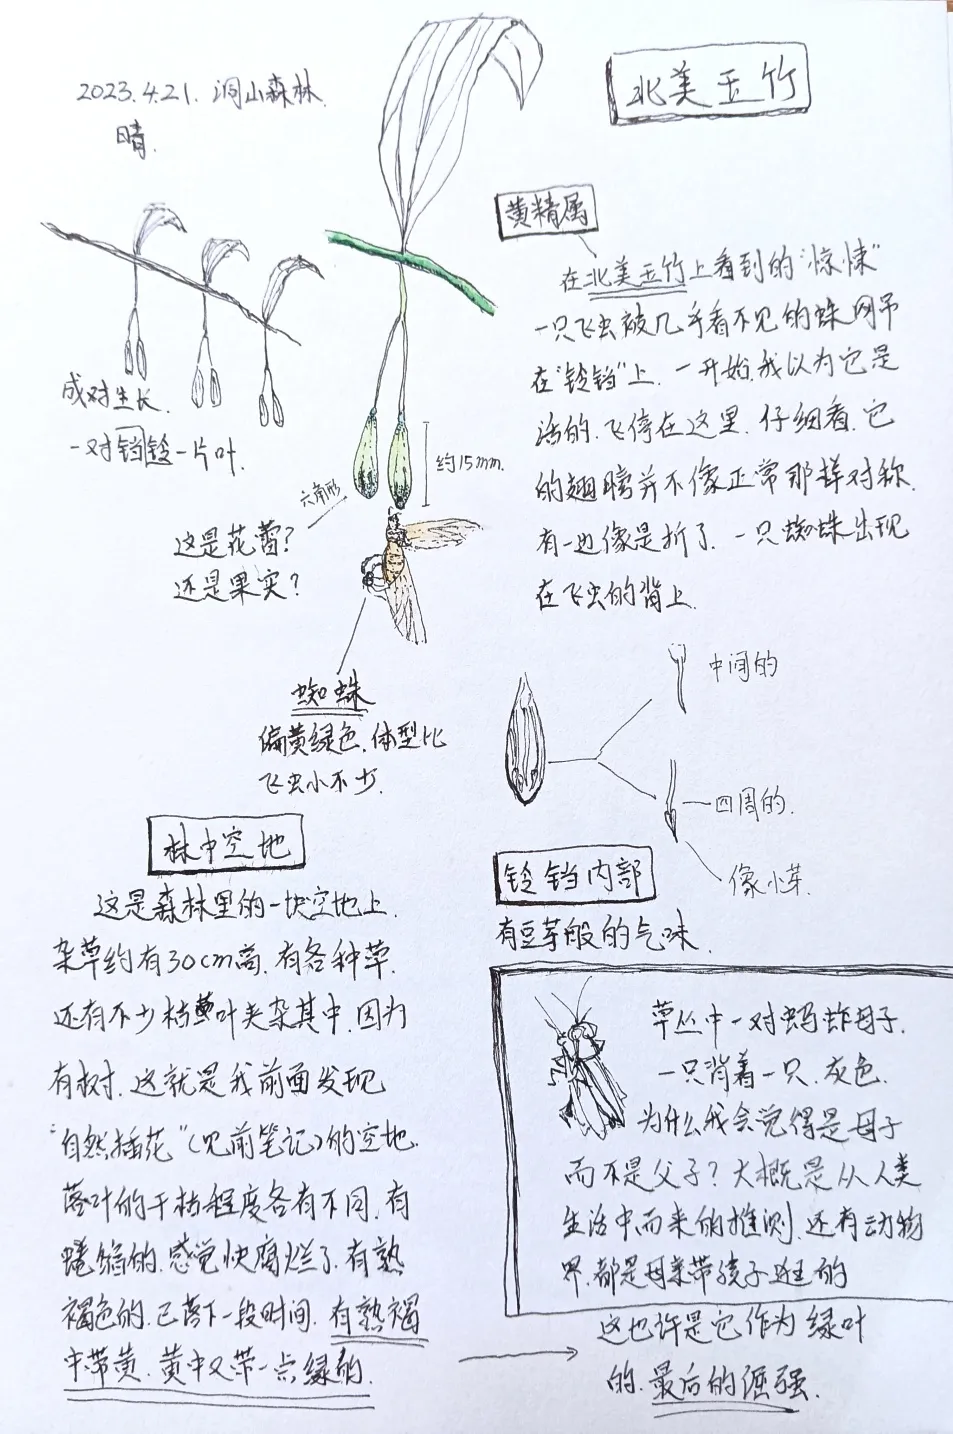 2023.4.21. 洞山森林.
晴.
北美玉竹
黄精属
在北美玉竹上看到的“惊悚”
一只飞虫被几乎看不见的蛛网吊
在“铃铛”上. 一开始,我以为它是
活的.飞停在这里. 仔细看.它
的翅膀并不像正常那样对称.
有一边像是折了. 一只蜘蛛出现
在飞虫的背上.
成对生长.
一对铛铃一片叶.
约15mm.
六角形
这是花蕾?
还是果实?
蜘蛛
偏黄绿色.体型比
飞虫小不少.
中间的
四周的.
像小芽.
铃铛内部
有豆芽般的气味.
林中空地
这是森林里的一块空地上.
杂草约有30cm高.有各种草.
还有不少枯叶夹杂其中.因为
有树.这就是我前面发现
“自然插花”(见前笔记)的空地.
落叶的干枯程度各有不同.有
蜷缩的.感觉快腐烂了.有熟
褐色的.已落下一段时间.有熟褐
中带黄.黄中又带一点绿的.
草丛中一对蚂蚱母子.
一只背着一只.灰色.
为什么我会觉得是母子
而不是父子?大概是从人类
生活中而来的推测.还有动物
界.都是母亲带孩子逛的
这也许是它作为绿叶
的.最后的倔强.